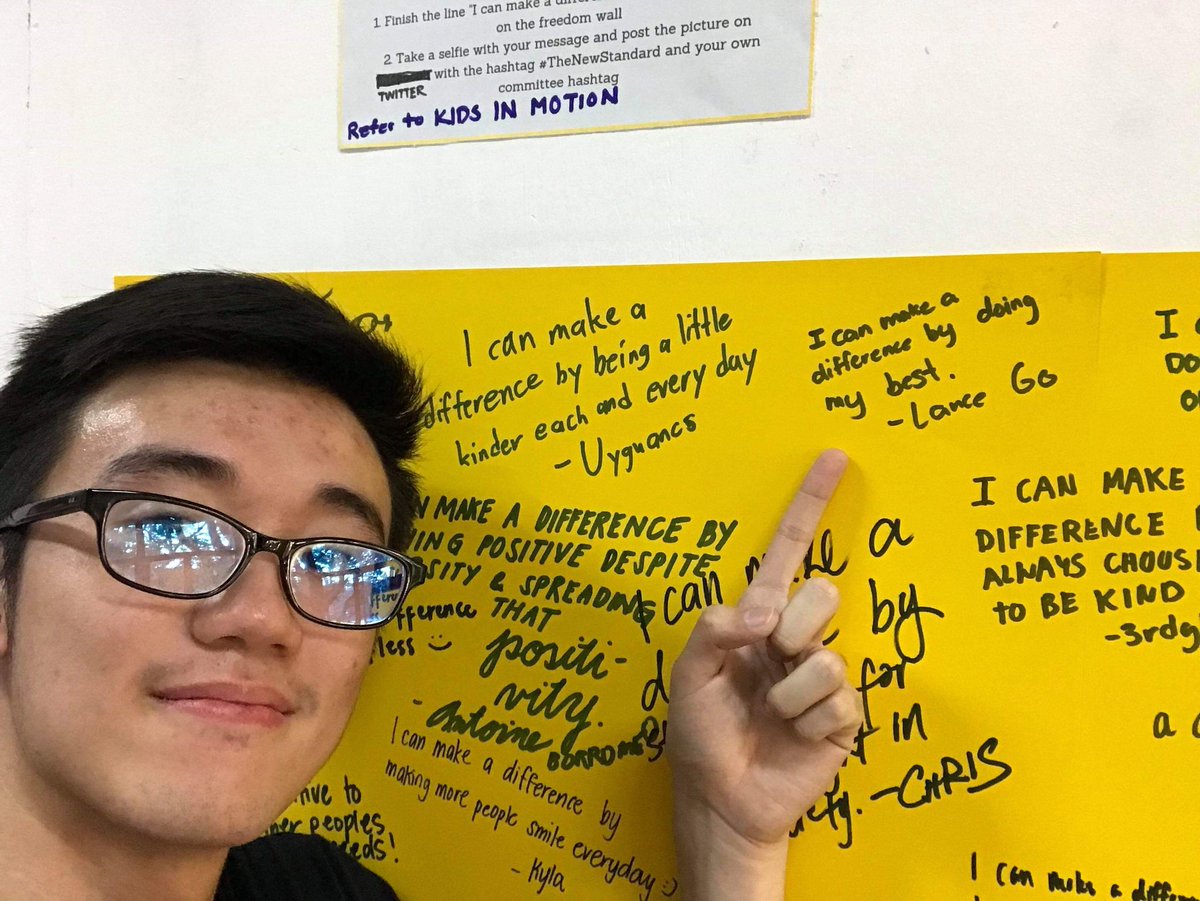 1 Finish the line "I can make a
on the freedom wall
2 Take a selfie with your message and post the picture on
with the hashtag #TheNewStandard and your own
TWITTER
committee hashtag
Refer to KIDS IN MOTION
I can make a
difference by being a little
kinder each and every day
- Uyguancs
I can make a
difference by doing
my best.
- Lance Go
I
I CAN MAKE
DIFFERENCE
ALWAYS
TO BE KIND
MAKE A DIFFERENCE BY
POSITIVE DESPITE
& SPREADING
THAT
positi-
vity.
- Antoine
BORROMEO
difference
I can a
by
for
in
- CHRIS
I can make a difference by
making more people smile everyday :)
- Kyla
to
peoples
I can make a
a